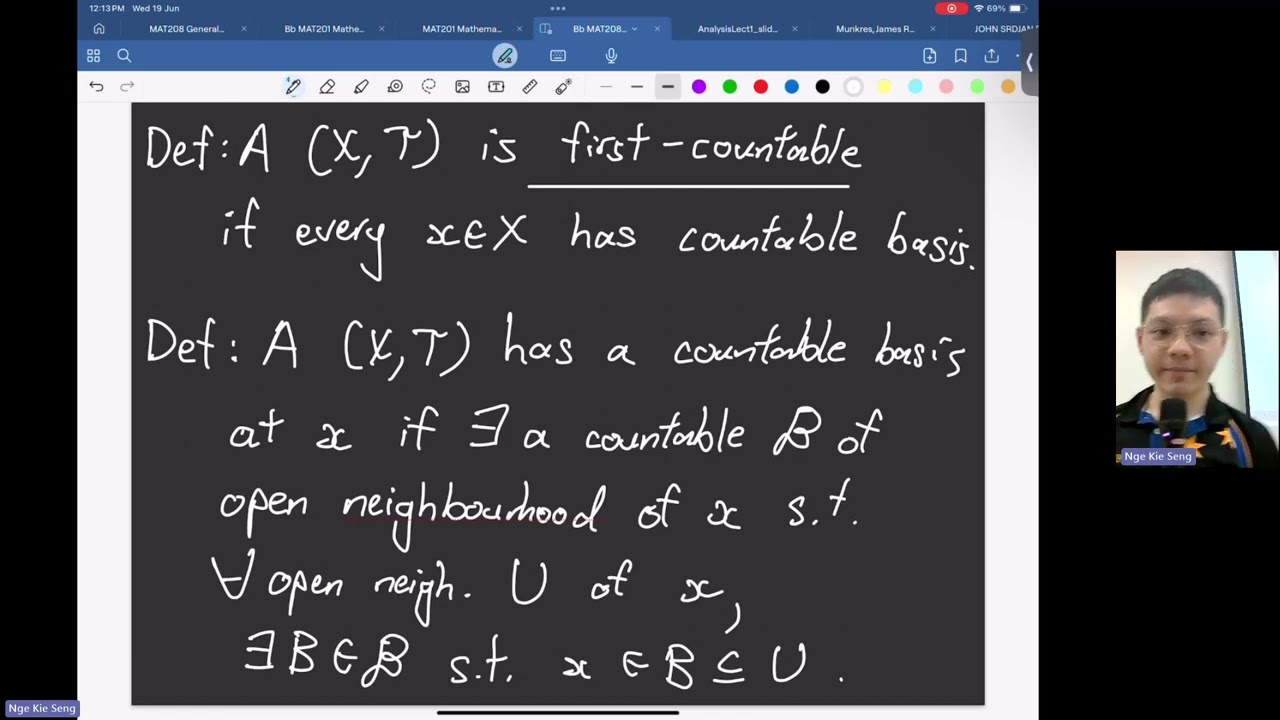 12:13PM Wed 19 Jun
69%
MAT208 General...
Bb MAT201 Mathe...
MAT201 Mathema...
Bb MAT208...
AnalysisLect1_slid...
Munkres, James R...
JOHN SRDJAN
Def: A (X, T) is first-countable
if every x∈X has countable basis.
Def: A (X, T) has a countable basis
at x if ∃ a countable B of
open neighbourhood of x s.t.
∀ open neigh. U of x,
∃ B ∈ B s.t. x ∈ B ⊆ U.
Nge Kie Seng
Nge Kie Seng